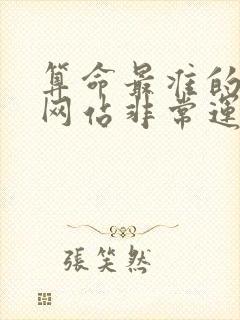 算命最准的
网站非常運
張笑然